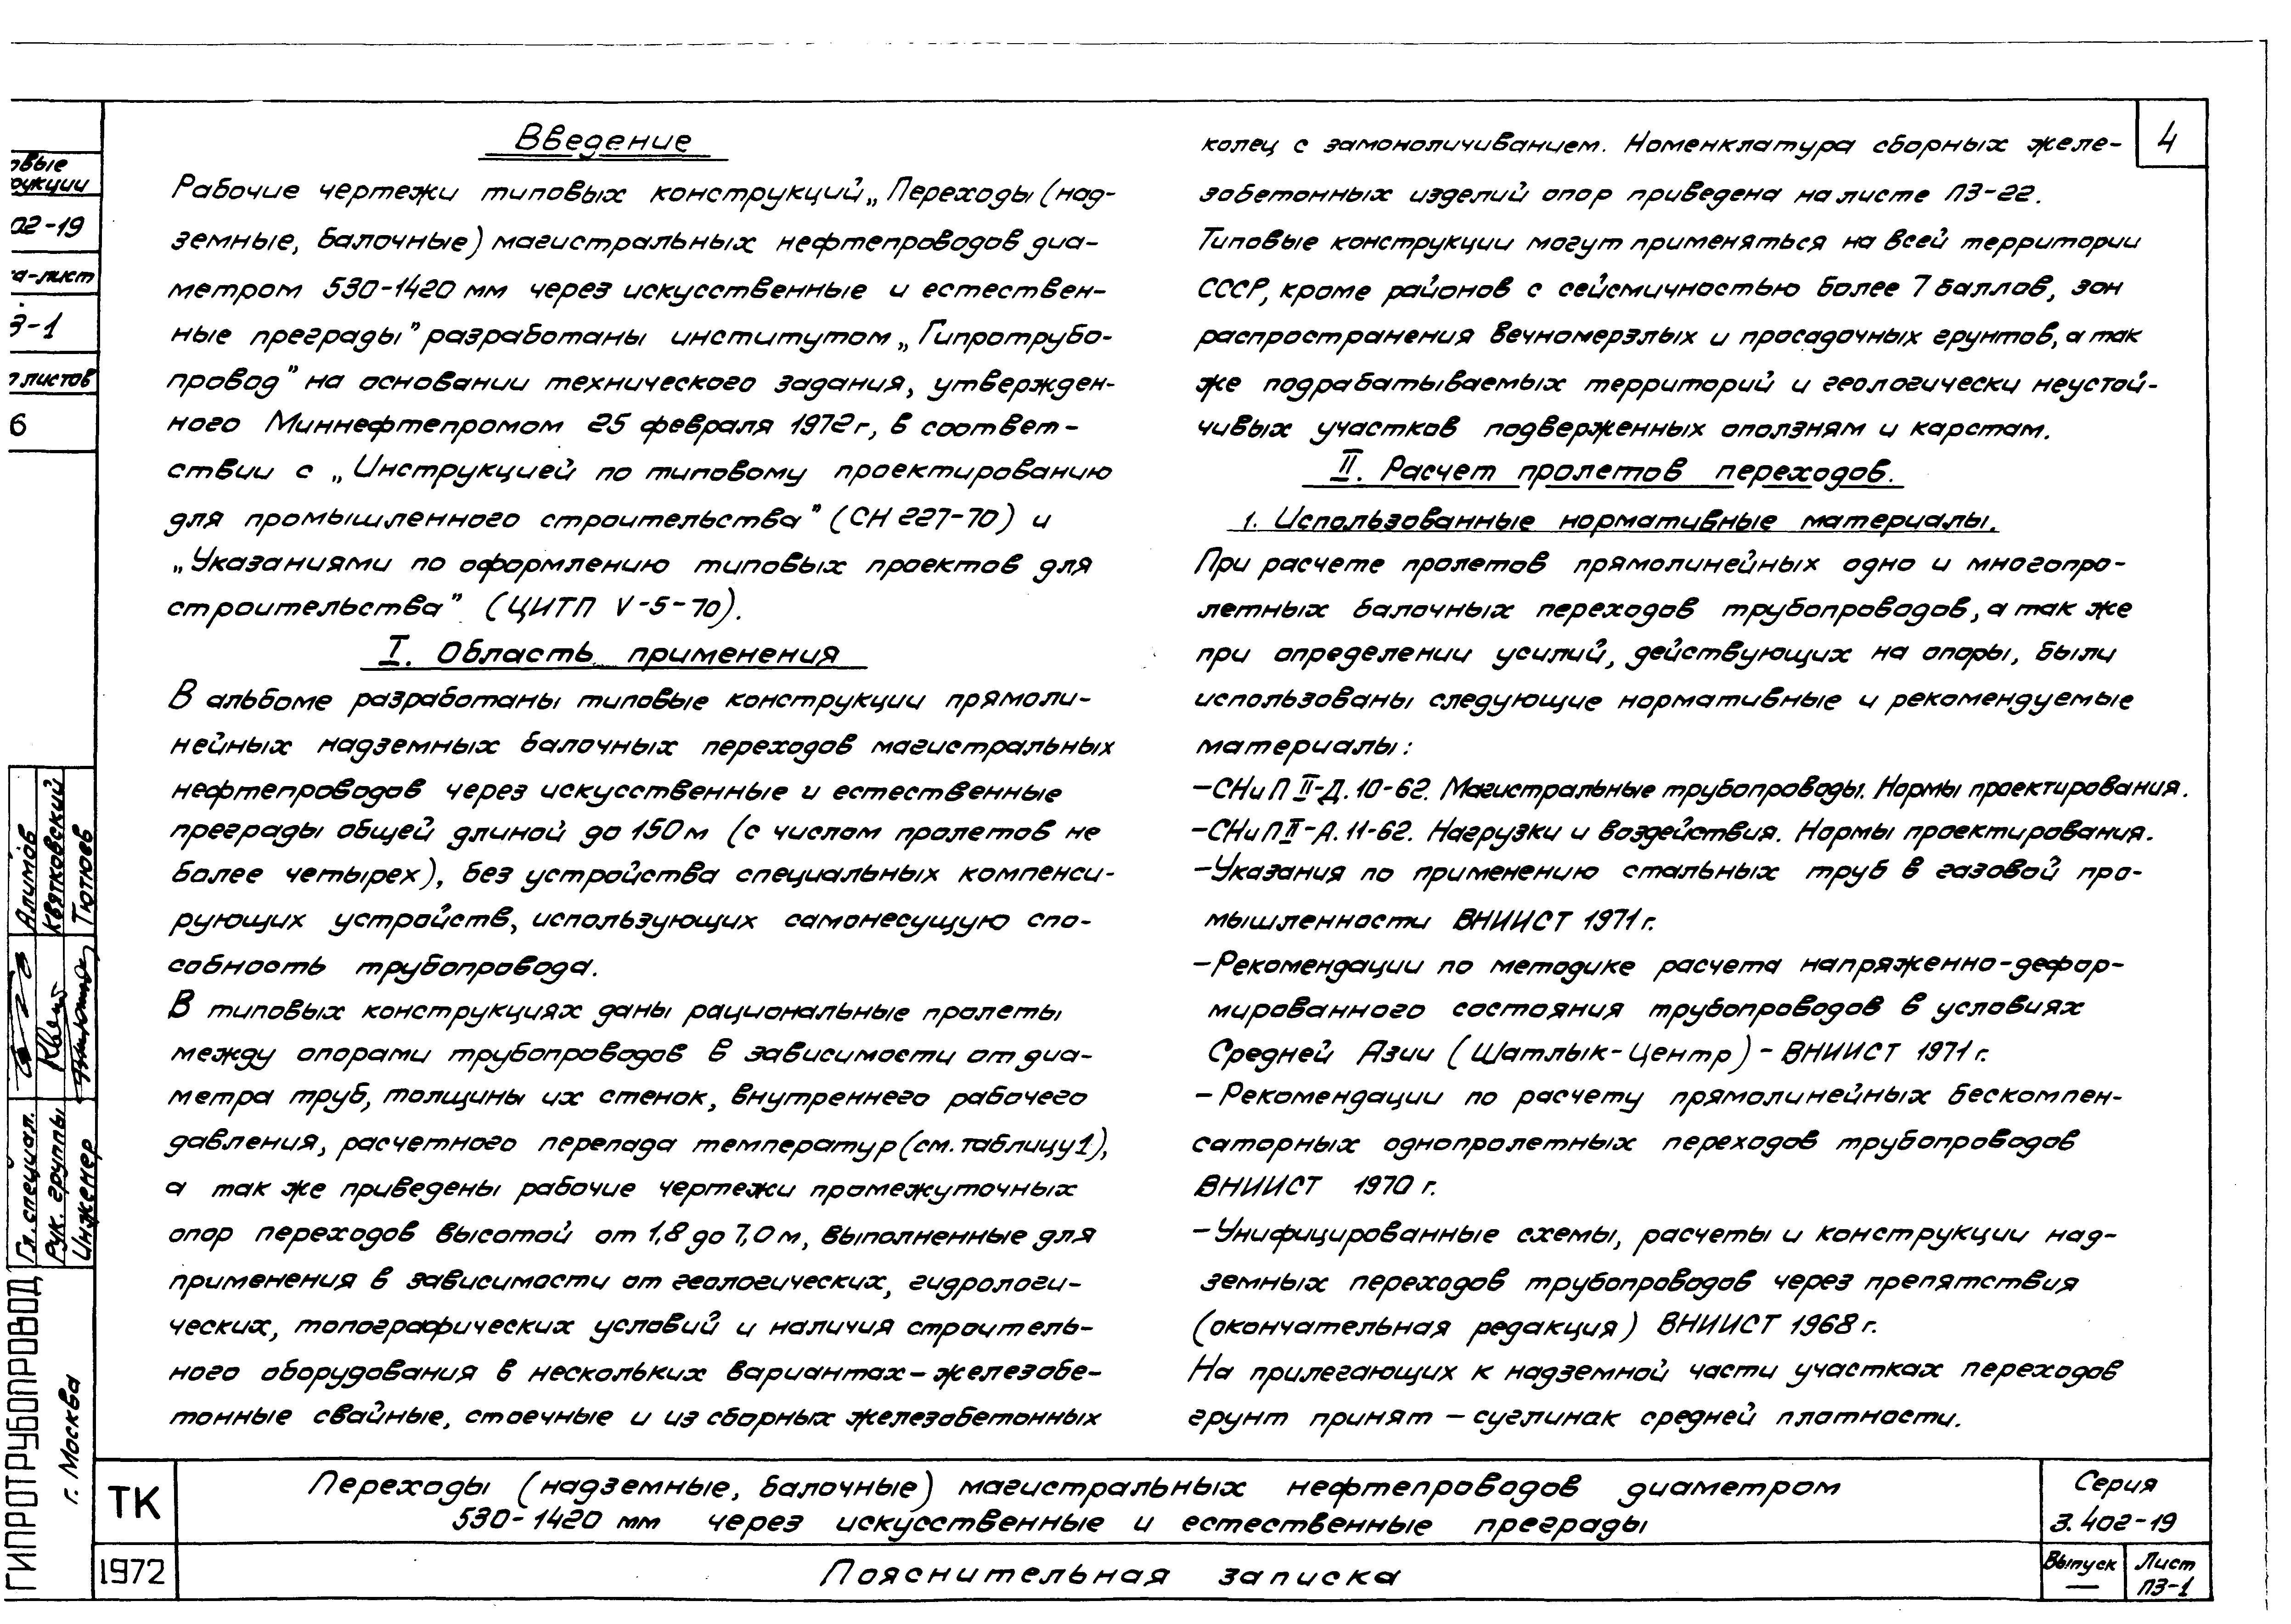 Введение
Рабочие чертежи типовых конструкций „Переходы (над-
земные, балочные) магистральных нефтепроводов диа-
метром 530-1420 мм через искусственные и естествен-
ные преграды" разработаны институтом „Гипротрубо-
провод" на основании технического задания, утвержден-
ного Миннефтепромом 25 февраля 1972 г, в соответ-
ствии с „Инструкцией по типовому проектированию
для промышленного строительства" (СН 227-70) и
„Указаниями по оформлению типовых проектов для
строительства" (ЦИТП V-5-70).
I. Область применения
В альбоме разработаны типовые конструкции прямоли-
нейных надземных балочных переходов магистральных
нефтепроводов через искусственные и естественные
преграды общей длиной до 150 м (с числом пролетов не
более четырех), без устройства специальных компенси-
рующих устройств, использующих самонесущую спо-
собность трубопровода.
В типовых конструкциях даны рациональные пролеты
между опорами трубопроводов в зависимости от диа-
метра труб, толщины их стенок, внутреннего рабочего
давления, расчетного перепада температур (см. таблицу 1),
а так же приведены рабочие чертежи промежуточных
опор переходов высотой от 1,8 до 7,0 м, выполненные для
применения в зависимости от геологических, гидрологи-
ческих, топографических условий и наличия строитель-
ного оборудования в нескольких вариантах - железобе-
тонные свайные, стоечные и из сборных железобетонных
4
колец с замоноличиванием. Номенклатура сборных желе-
зобетонных изделий опор приведена на листе ПЗ-22.
Типовые конструкции могут применяться на всей территории
СССР, кроме районов с сейсмичностью более 7 баллов, зон
распространения вечномерзлых и просадочных грунтов, а так
же подрабатываемых территорий и геологически неустой-
чивых участков подверженных оползням и карстам.
II. Расчет пролетов переходов.
1. Использованные нормативные материалы.
При расчете пролетов прямолинейных одно и многопро-
летных балочных переходов трубопроводов, а так же
при определении усилий, действующих на опоры, были
использованы следующие нормативные и рекомендуемые
материалы:
-СНиП II-Д.10-62. Магистральные трубопроводы. Нормы проектирования.
-СНиП II-А.11-62. Нагрузки и воздействия. Нормы проектирования.
-Указания по применению стальных труб в газовой про-
мышленности ВНИИСТ 1971 г.
-Рекомендации по методике расчета напряженно-дефор-
мированного состояния трубопроводов в условиях
Средней Азии (Шатлык-Центр) - ВНИИСТ 1971 г.
- Рекомендации по расчету прямолинейных бескомпен-
саторных однопролетных переходов трубопроводов
ВНИИСТ 1970 г.
-Унифицированные схемы, расчеты и конструкции над-
земных переходов трубопроводов через препятствия
(окончательная редакция) ВНИИСТ 1968 г.
На прилегающих к надземной части участках переходов
грунт принят - суглинок средней плотности.
овые
рукции
02-19
а-лист
З-1
листов
6
Гл. специал. Алимов
Рук. группы Квятковский
Инженер Тютюев
ГИПРОТРУБОПРОВОД
г. Москва
ТК
1972
Переходы (надземные, балочные) магистральных нефтепроводов диаметром
530-1420 мм через искусственные и естественные преграды
Пояснительная записка
Серия
3.402-19
Выпуск
—
Лист
ПЗ-1